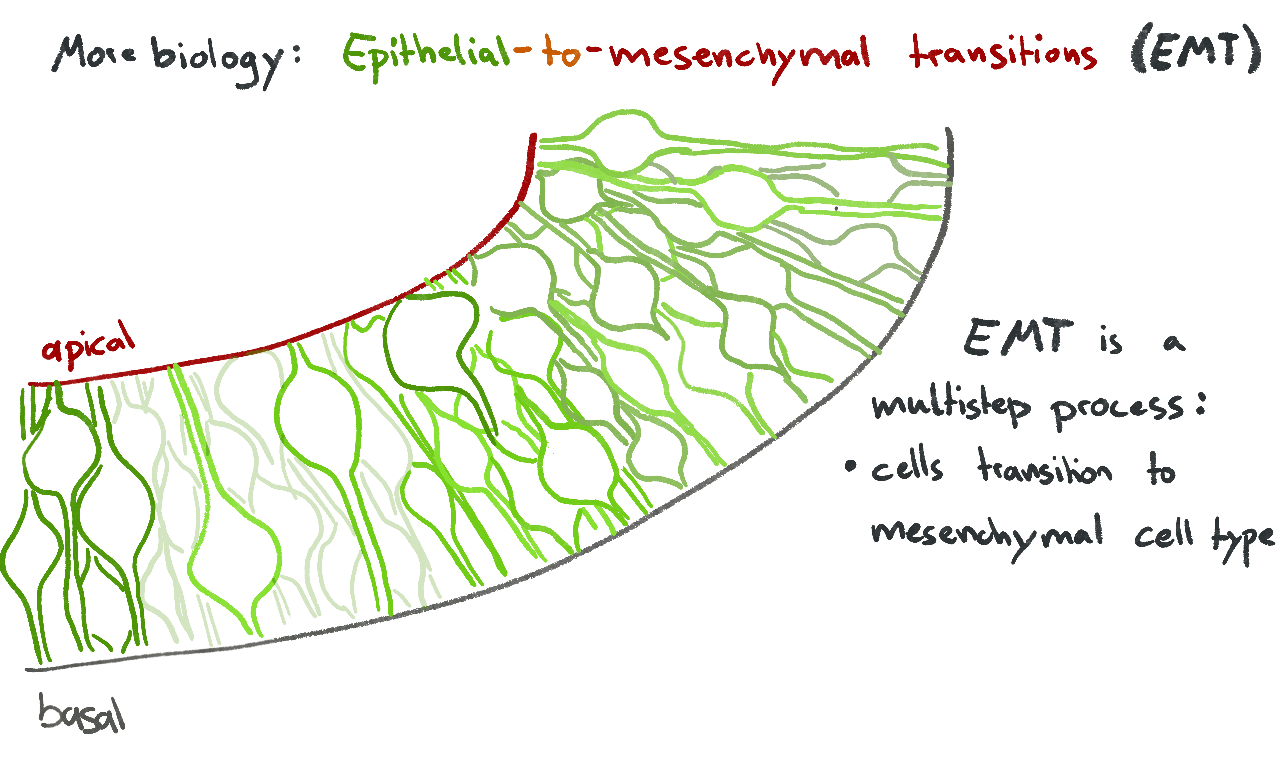 More biology: Epithelial-to-mesenchymal transitions (EMT)
apical
EMT is a
multistep process:
• cells transition to
mesenchymal cell type
basal